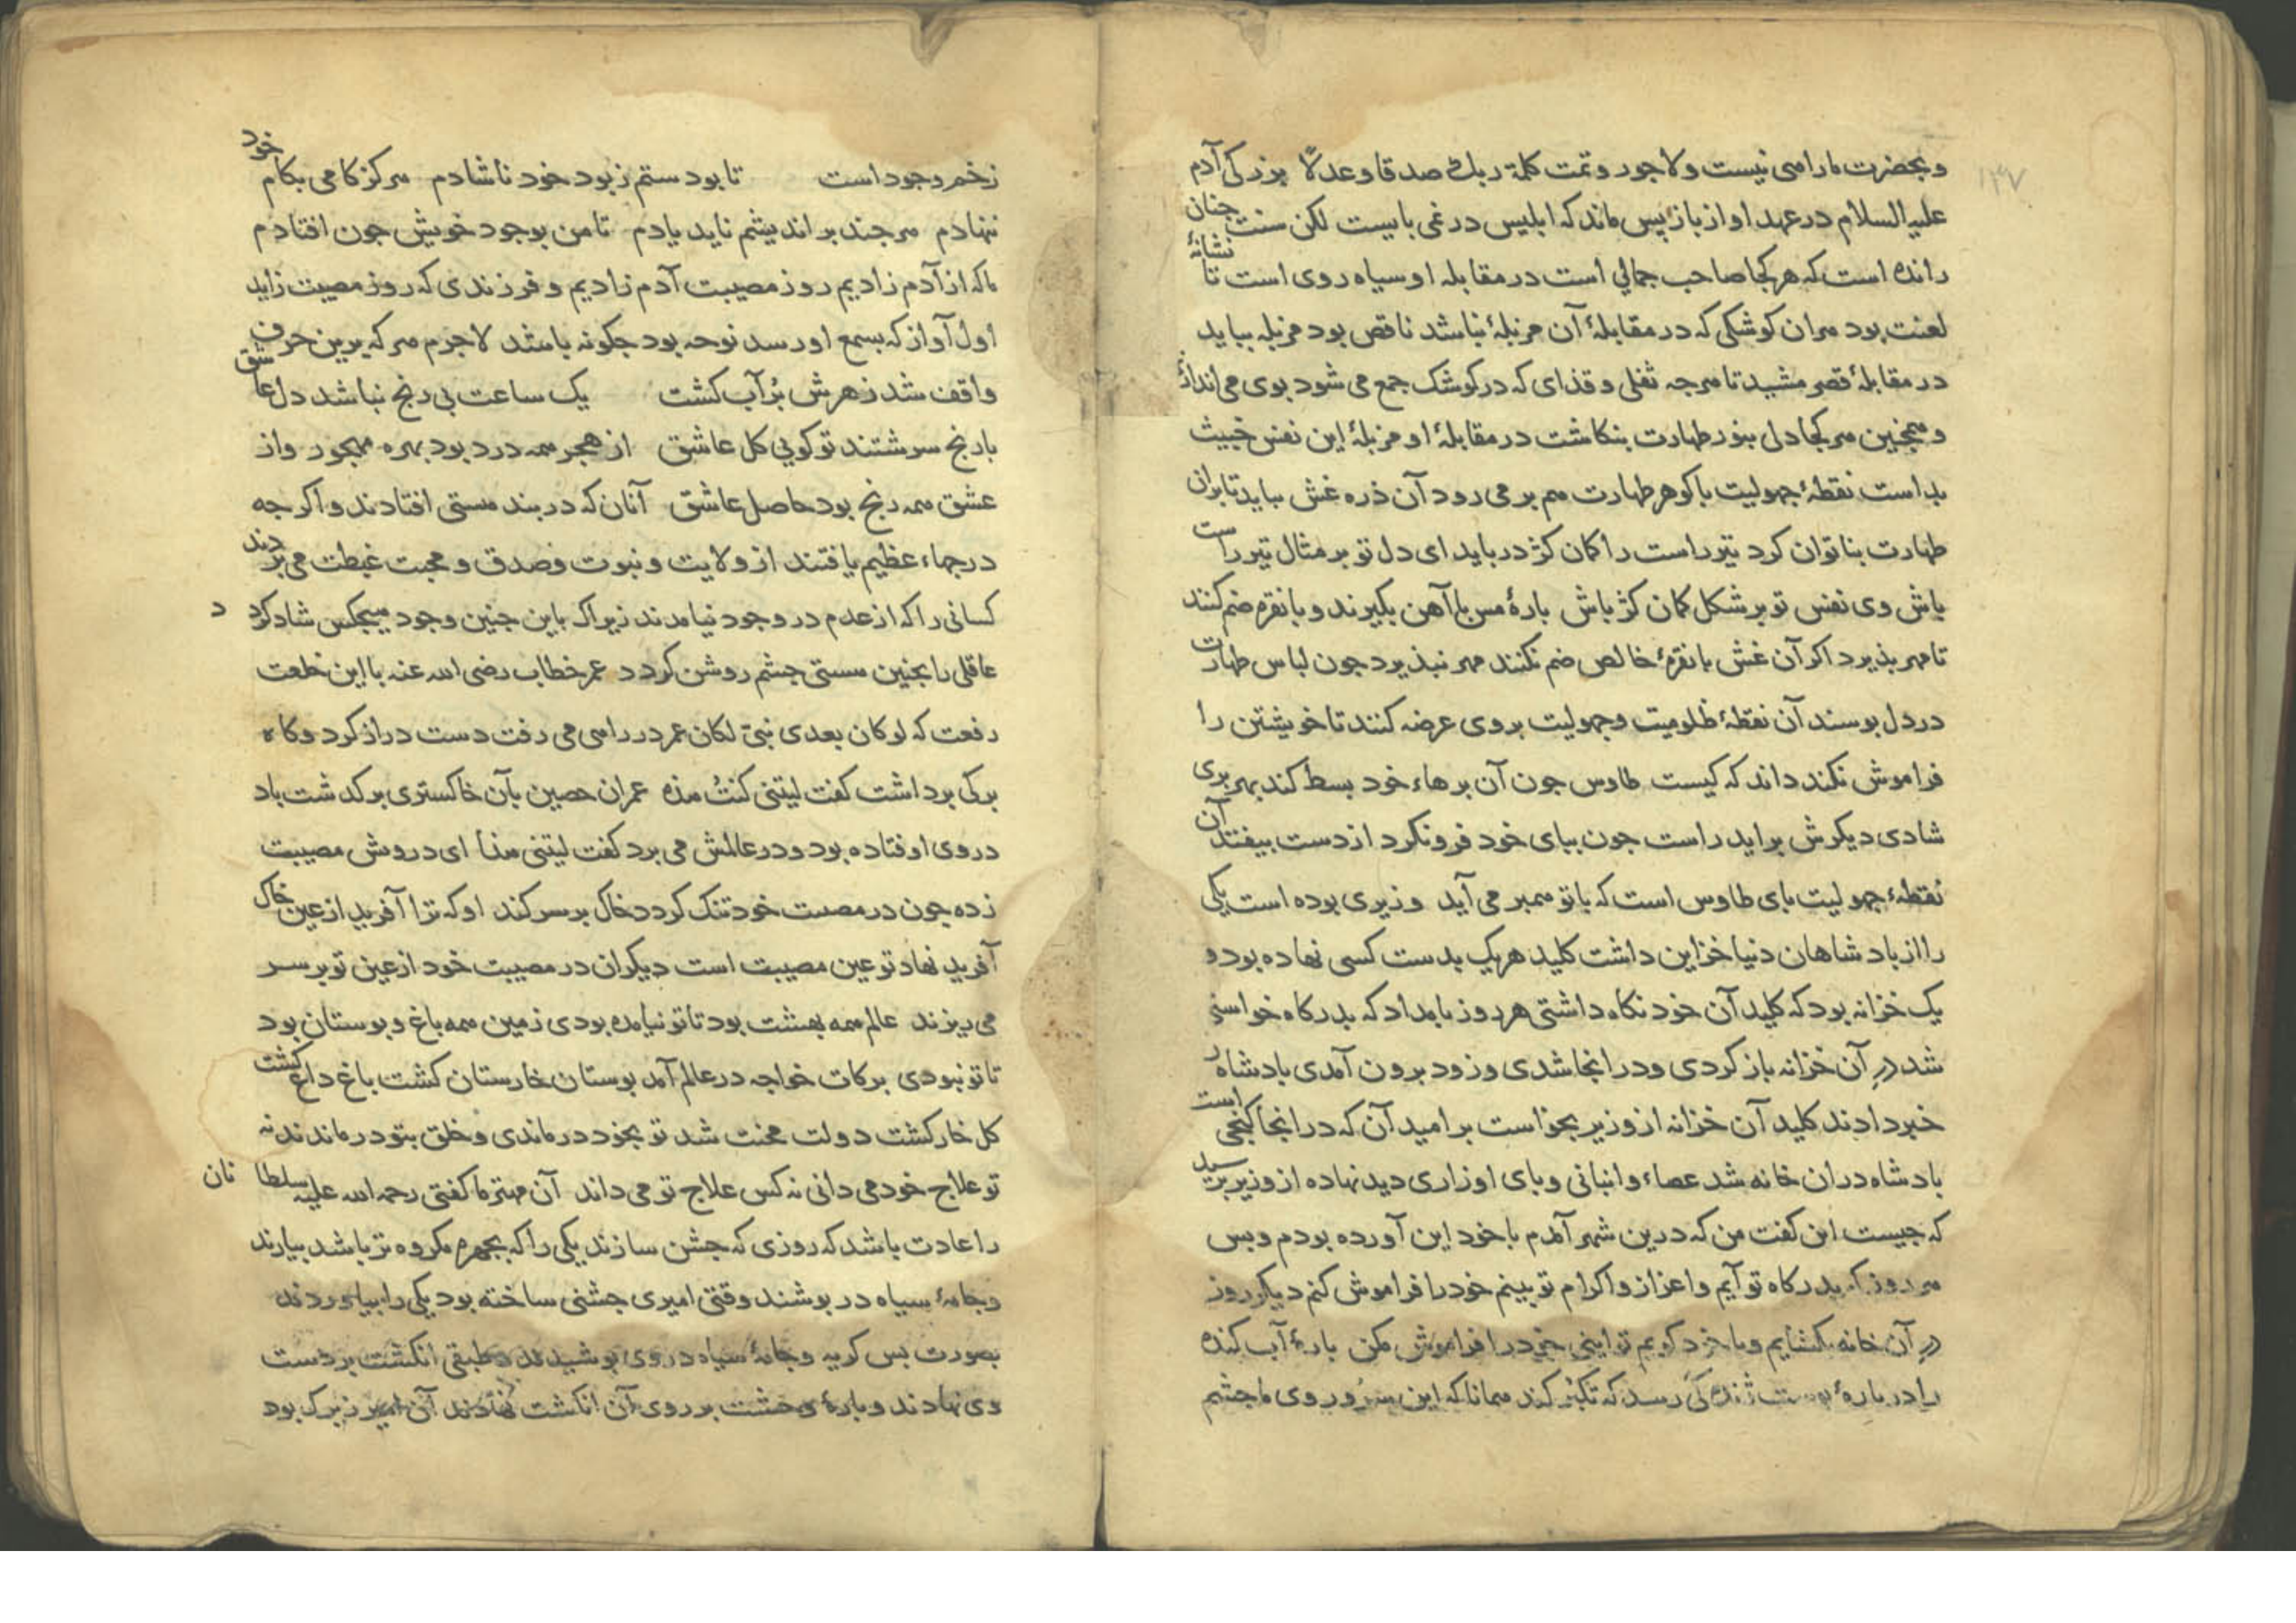 ۱۳۷
و بحضرت ما راهی نیست ولاجور و تمت کلمة ربك صدقا وعدلًا بزرکی آدم
علیه السلام در عهد او از باز پس ماند که ابلیس در غی بایست لکن سنت چنان
رانده است که هر کجا صاحب جمالی است در مقابله او سیاه روی است تا نشانهٔ
لعنت بود هران کوشکی که در مقابلهٔ آن مزبلهٔ نباشد ناقص بود مزبله بباید
در مقابلهٔ قصر مشید تا هرجه ثفلی و قذای که در کوشک جمع می شود بوی می اندازند
و همچنین هر کجا دلی بنور طهارت بنکاشت در مقابلهٔ او مزبلهٔ این نفس خبیث
بداست نقطهٔ جهولیت با کوهر طهارت هم بر می رود آن ذره غش بباید تا بران
طهارت بنا توان کرد تیر راست را کمان کژ درباید ای دل تو بر مثال تیر راست
باش وی نفس تو بر شکل کمان کژ باش بارهٔ مس یا آهن بکیرند و با نقره ضم کنند
تا مهر بذیرد اکر آن غش با نقرهٔ خالص ضم نکنند مهر نبذیرد جون لباس طهارت
در دل بوسند آن نقطهٔ ظلومیت وجهولیت بروی عرضه کنند تا خویشتن را
فراموش نکند داند که کیست طاوس جون آن برهاء خود بسط کند بهر بری
شادی دیکرش براید راست جون ببای خود فرونکرد از دست بیفتد آن
نقطهٔ جهولیت بای طاوس است که با تو همبر می آید وزیری بوده است یکی
را از بادشاهان دنیا خزاین داشت کلید هر یک بدست کسی نهاده بود و
یک خزانه بود که کلید آن خود نکاه داشتی هر روز بامداد که بدرکاه خواستی
شد در آن خزانه باز کردی و در انجا شدی و زود برون آمدی بادشاه را
خبر دادند کلید آن خزانه از وزیر بخواست بر امید آن که در انجا کنجی است
بادشاه دران خانه شد عصاء و انبانی و بای اوزاری دید نهاده از وزیر برسید
که جیست این کفت من که درین شهر آمدم با خود این آورده بودم و بس
هر روز که بدرکاه تو آیم و اعزاز و اکرام تو بینم خود را فراموش کنم دیکر روز
در آن خانه بکشایم و با خود کویم تو اینی خود را فراموش مکن بارهٔ آب کنده
را در بارهٔ بوست کی رسد که تکبر کند همانا که این سر و روی ما جشم
زخم وجود است تا بود ستم ز بود خود ناشادم هرکز کامی بکام خود
ننهادم هرچند بر اندیشم ناید یادم تا من بوجود خویش جون افتادم
ما که از آدم زادیم روز مصیبت آدم زادیم و فرزندی که روز مصیبت زاید
اول آواز که بسمع او رسد نوحه بود جکونه باشد لاجرم هر که برین حرف
واقف شد زهرش بُر آب کشت یک ساعت بی رنج نباشد دل عاشق
با رنج سرشتند تو کویی کل عاشق از هجر همه درد بود بهره مهجور و از
عشق همه رنج بود حاصل عاشق آنان که در بند هستی افتادند و اکر جه
درجهاء عظیم یافتند از ولایت و نبوت و صدق و محبت غبطت می بردند
کسانی را که از عدم در وجود نیامدند زیرا که باین جنین وجود هیچکس شاد کردد
عاقلی را بجنین هستی جشم روشن کردد عمر خطاب رضی الله عنه با این خلعت
رفعت که لو کان بعدی نبیّ لکان عمر در راهی می رفت دست دراز کرد و کاه
برکی برداشت کفت لیتنی کنتُ هذه عمران حصین بآن خاکستری برکدشت باد
در وی اوفتاده بود و در عالمش می برد کفت لیتنی هذا ای درویش مصیبت
زده جون در مصیبت خود تنک کردد خاک بر سر کند او که ترا آفرید از عین خاک
آفرید نهاد تو عین مصیبت است دیکران در مصیبت خود از عین تو بر سر
می ریزند عالم همه بهشت بود تا تو نیامده بودی زمین همه باغ و بوستان بود
تا تو نبودی برکات خواجه در عالم آمد بوستان خارستان کشت باغ داغ کشت
کل خار کشت دولت محنت شد تو بخود درماندی و خلق بتو درماندند نه
تو علاج خود می دانی نه کس علاج تو می داند آن مهتر ما کفتی رحمه الله علیه سلطانان
را عادت باشد که روزی که جشن سازند یکی را که بچهره مکروه تر باشد بیارند
و جامهٔ سیاه در بوشند وقتی امیری جشنی ساخته بود یکی را بیاوردند
بصورت بس کریه و جامهٔ سیاه در وی بوشیدند و طبقی انکشت بر دست
وی نهادند و بارهٔ خشت بر روی آن انکشت نهادند آن امیر زیرک بود